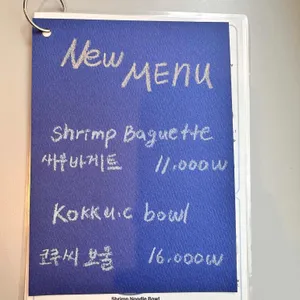 New MENU
Shrimp Baguette
새우바게트 11,000₩
Kokku.c bowl
코쿠씨 보울 16,000₩
Shrimp Noodle Bowl